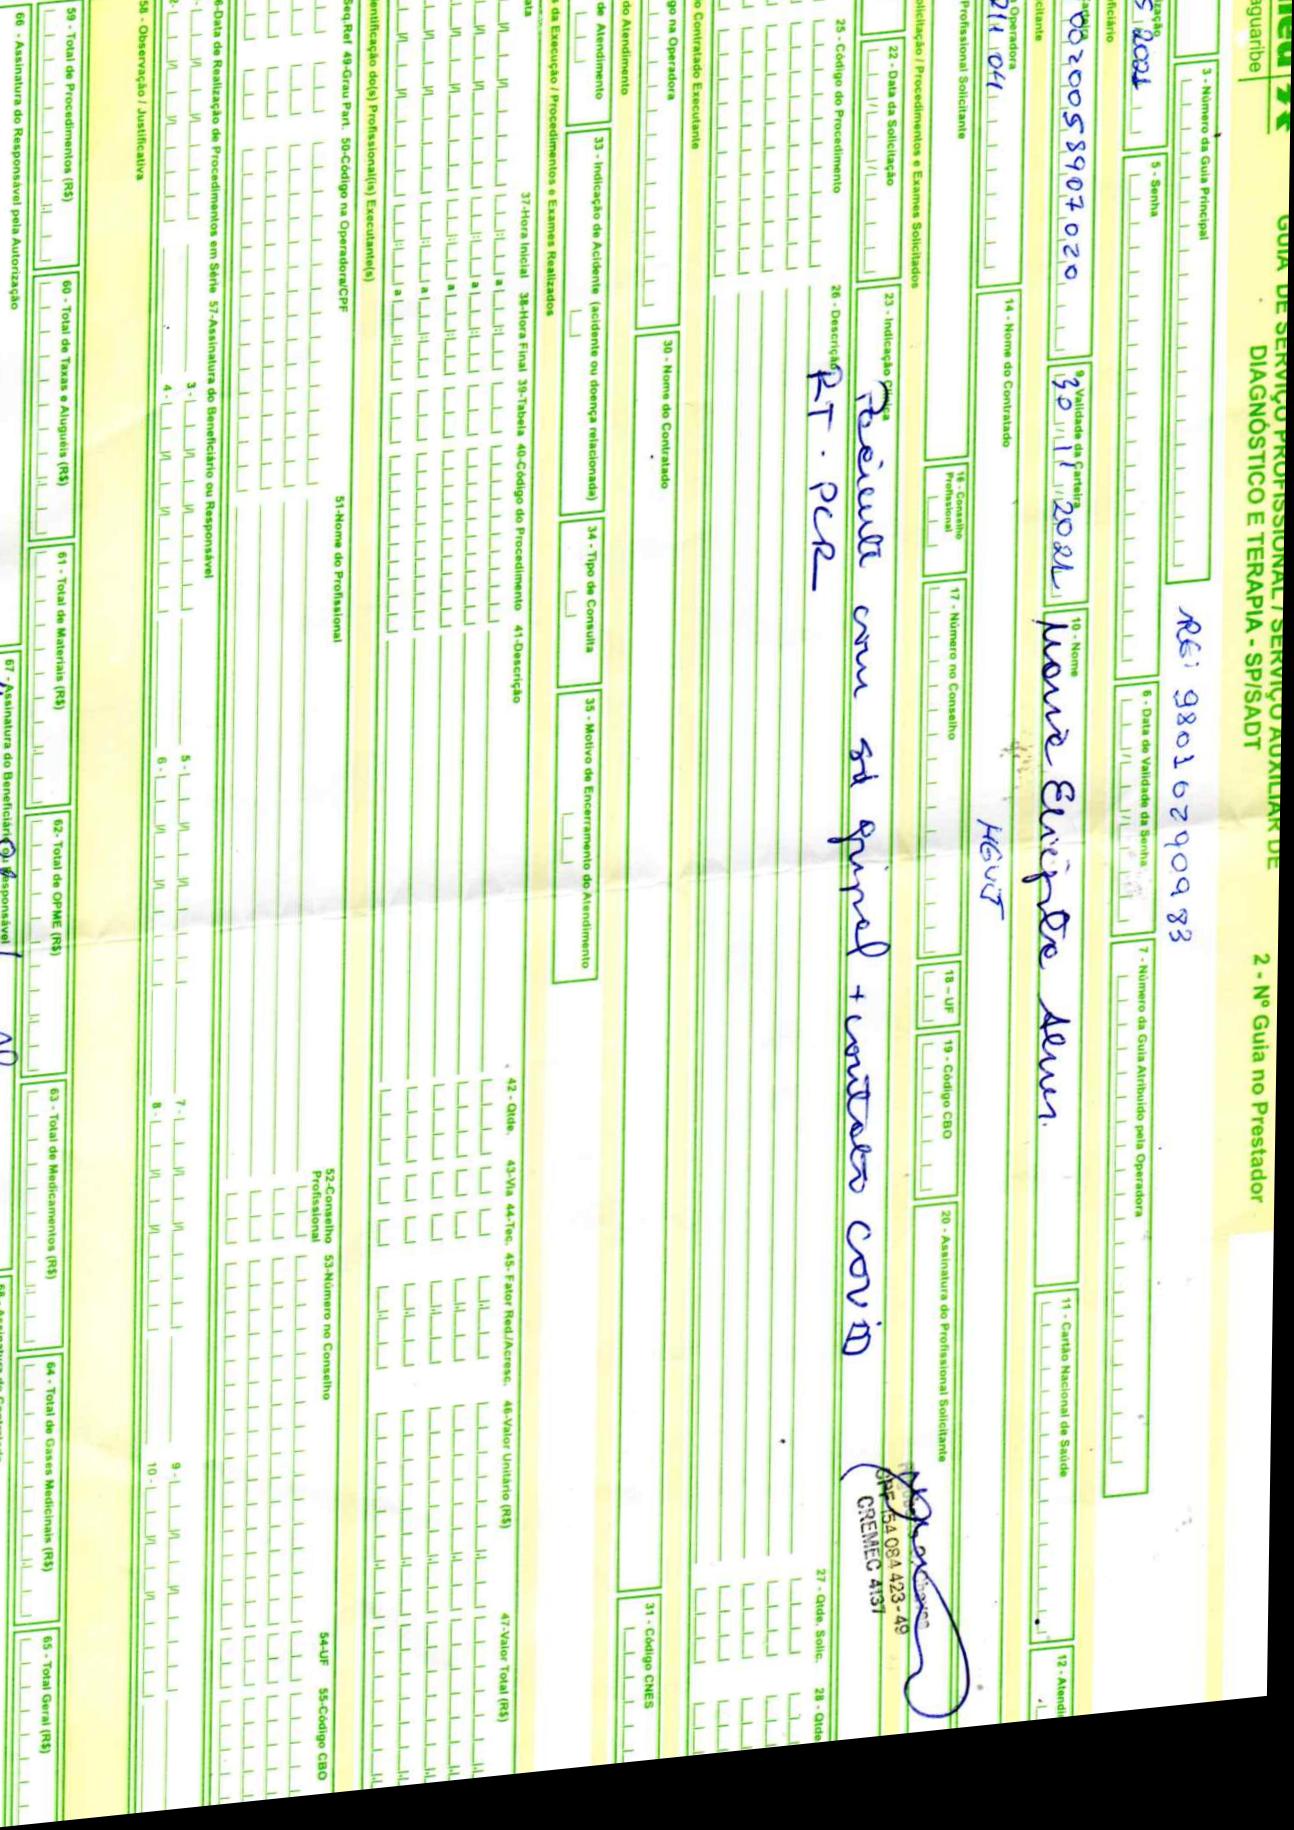 aguaribe
GUIA DE SERVIÇO PROFISSIONAL / SERVIÇO AUXILIAR DE
DIAGNÓSTICO E TERAPIA - SP/SADT
2 - Nº Guia no Prestador
3 - Número da Guia Principal
RG: 98016290983
5 2021
5 - Senha
6 - Data de Validade da Senha
7 - Número da Guia Atribuído pela Operadora
9 - Validade da Carteira
10 - Nome
11 - Cartão Nacional de Saúde
12 - Atendi
0020058907020
30 11 2021
Operadora
14 - Nome do Contratado
HGVJ
Profissional Solicitante
16 - Conselho Profissional
17 - Número no Conselho
18 - UF
19 - Código CBO
20 - Assinatura do Profissional Solicitante
olicitação / Procedimentos e Exames Solicitados
22 - Data da Solicitação
23 - Indicação Clínica
Paciente com sd gripal + contato COVID
CPF 154 084 423-49
CREMEC 4137
25 - Código do Procedimento
26 - Descrição
27 - Qtde. Solic.
28 - Qtde
RT. PCR
o Contratado Executante
go na Operadora
30 - Nome do Contratado
31 - Código CNES
do Atendimento
de Atendimento
33 - Indicação de Acidente (acidente ou doença relacionada)
34 - Tipo de Consulta
35 - Motivo de Encerramento do Atendimento
da Execução / Procedimentos e Exames Realizados
ata
37-Hora Inicial
38-Hora Final
39-Tabela
40-Código do Procedimento
41-Descrição
42 - Qtde.
43-Via
44-Tec.
45- Fator Red./Acresc.
46-Valor Unitário (R$)
47-Valor Total (R$)
entificação do(s) Profissional(is) Executante(s)
Seq.Ref
49-Grau Part.
50-Código na Operadora/CPF
51-Nome do Profissional
52-Conselho Profissional
53-Número no Conselho
54-UF
55-Código CBO
6-Data de Realização de Procedimentos em Série
57-Assinatura do Beneficiário ou Responsável
3 -
5 -
7 -
9 -
2 -
4 -
6 -
8 -
10 -
58 - Observação / Justificativa
59 - Total de Procedimentos (R$)
60 - Total de Taxas e Aluguéis (R$)
61 - Total de Materiais (R$)
62- Total de OPME (R$)
63 - Total de Medicamentos (R$)
64 - Total de Gases Medicinais (R$)
65 - Total Geral (R$)
66 - Assinatura do Responsável pela Autorização
67 - Assinatura do Beneficiário ou Responsável